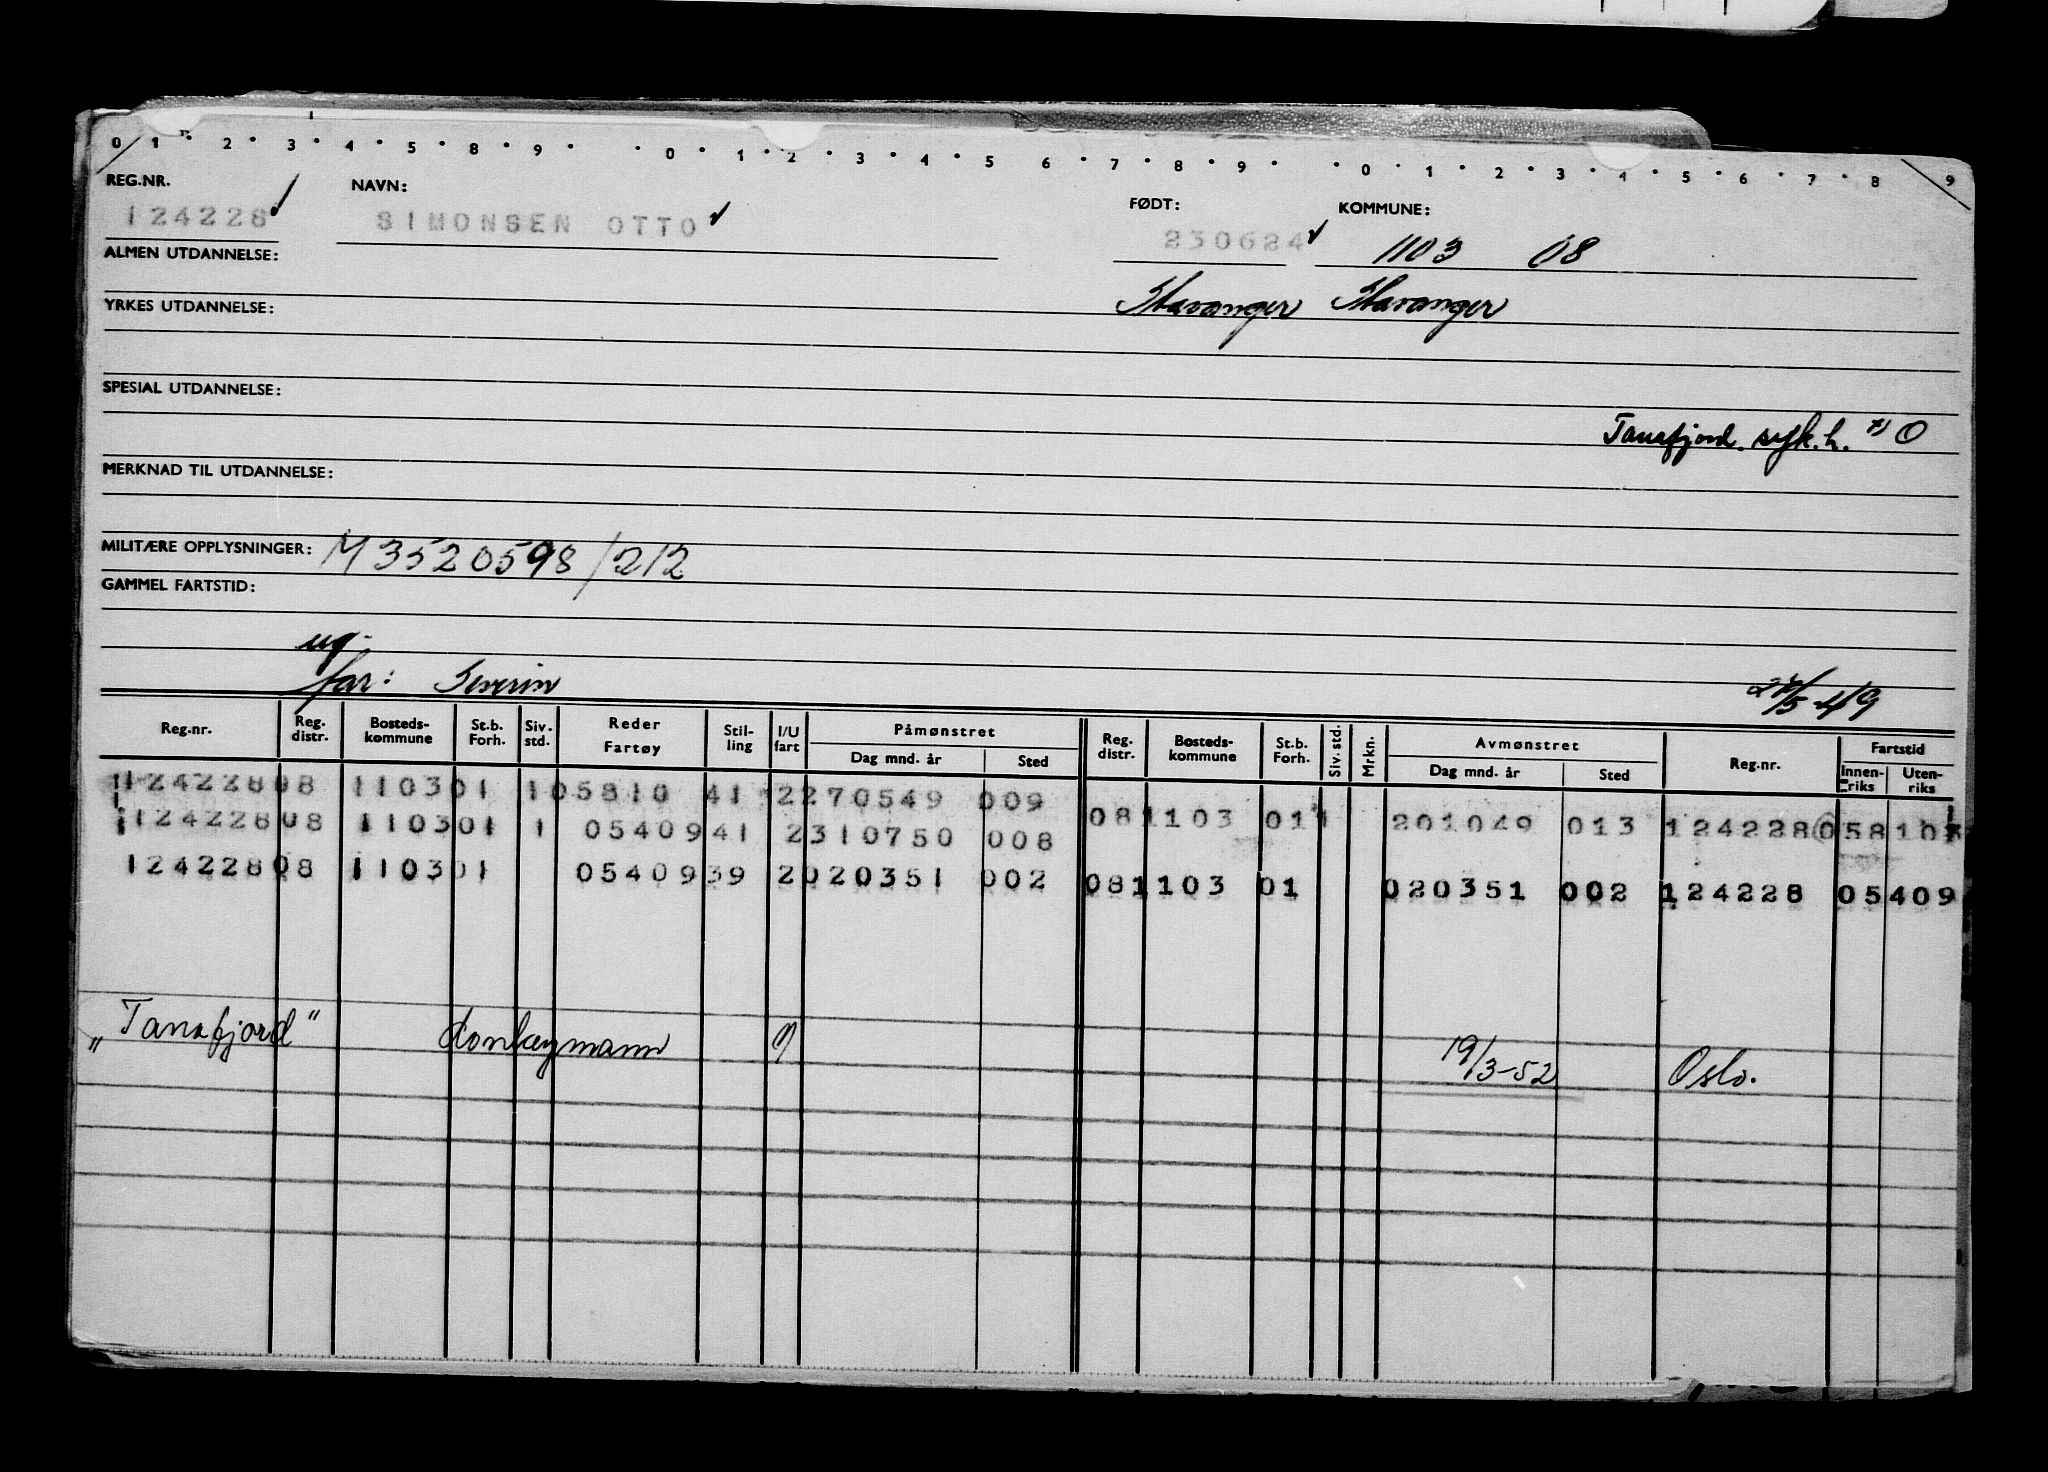 0 1 2 3 4 5 8 9 0 1 2 3 4 5 6 7 8 9 0 1 2 3 4 5 6 7 8 9
REG.NR. NAVN: FØDT: KOMMUNE:
124228 SIMONSEN OTTO 230624 1103 08
ALMEN UTDANNELSE:
YRKES UTDANNELSE: Stavanger Stavanger
SPESIAL UTDANNELSE:
Tanafjord. syk.h. O
MERKNAD TIL UTDANNELSE:
MILITÆRE OPPLYSNINGER: M 3520598/212
GAMMEL FARTSTID:
ug.
far: Severin
/5-49
Reg.nr. Reg. distr. Bosteds-kommune St.b. Forh. Siv. std. Reder Fartøy Stil-ling I/U fart Påmønstret Dag mnd. år Sted Reg. distr. Bosteds-kommune St.b. Forh. Siv. std. Mrkn. Avmønstret Dag mnd. år Sted Reg.nr. Fartstid Innen-riks Uten-riks
124228 08 1103 01 1 05810 41 2 270549 009 08 1103 01 1 201049 013 124228 05810
124228 08 1103 01 1 05409 41 2 310750 008
124228 08 1103 01 05409 39 2 020351 002 08 1103 01 020351 002 124228 05409
„Tanafjord" donkeymann 19/3-52 Oslo.